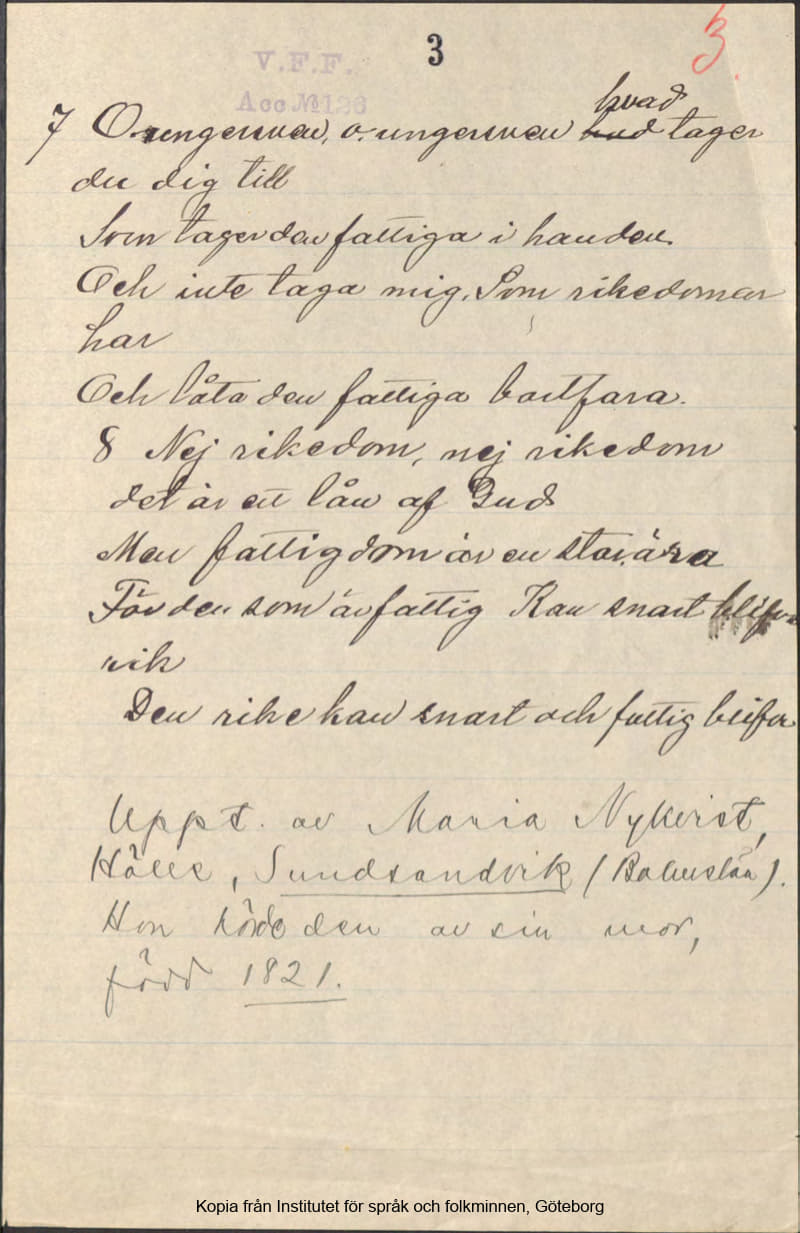 3
3
V.F.F.
Acc № 126
7 O ungersven, o ungersven hvad tager
du dig till
Som tager den fattiga i handen
Och inte taga mig, Som rikedomar
har
Och låta den fattiga bortfara.
8 Nej rikedom, nej rikedom
det är ett lån af Gud
Men fattigdom är en stor ära
För den som är fattig Kan snart blifva
rik
Den rike kan snart och fattig blifva
Uppt. av Maria Nykvist,
Sundsandvik (Bohuslän).
Hon hörde den av sin mor,
född 1821.
Kopia från Institutet för språk och folkminnen, Göteborg